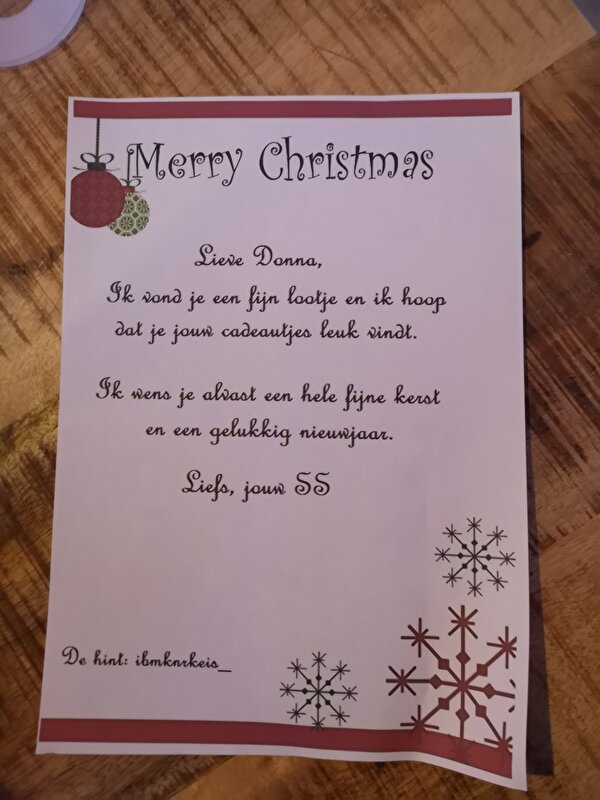 Merry Christmas
Lieve Donna,
Ik vond je een fijn lootje en ik hoop
dat je jouw cadeautjes leuk vindt.
Ik wens je alvast een hele fijne kerst
en een gelukkig nieuwjaar.
Liefs, jouw SS
De hint: ibmknrkeis_